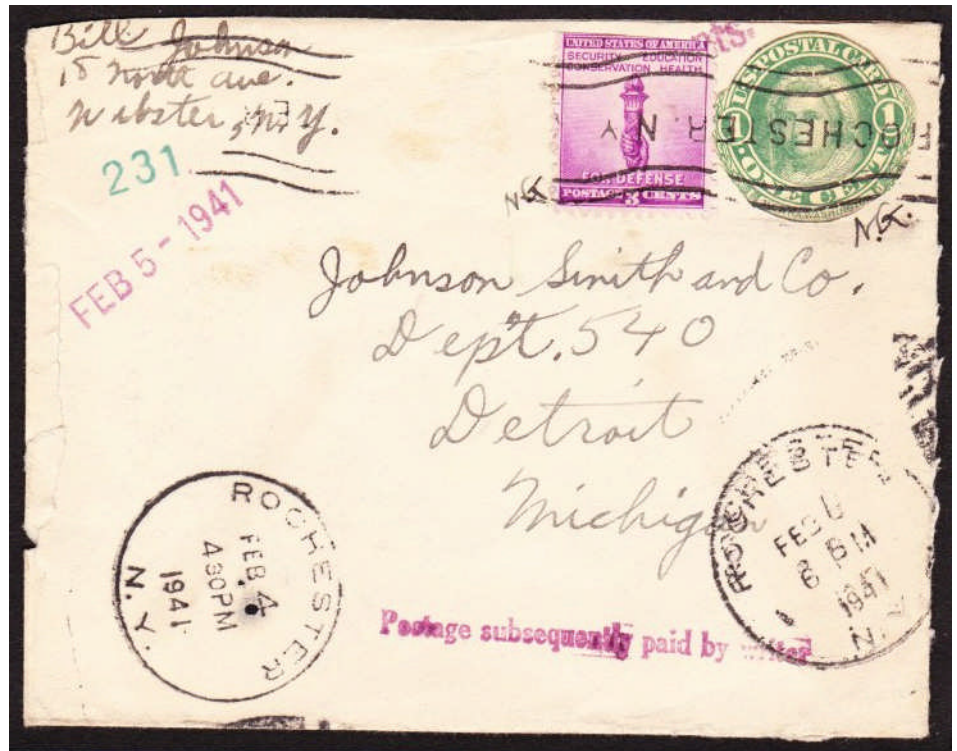 Bill Johnson
15 North Ave.
Webster, N.Y.
231
FEB 5 - 1941
UNITED STATES OF AMERICA
SECURITY EDUCATION
CONSERVATION HEALTH
FOR DEFENSE
POSTAGE 3 CENTS
U.S. POSTAL CARD
1 1
ONE CENT
ROCHESTER, N.Y.
N.G.
N.G.
Johnson Smith and Co.
Dept. 540
Detroit
Michigan
ROCHESTER
FEB 4
430PM
1941
N.Y.
ROCHESTER
FEB
1941
N.
Postage subsequently paid by writer